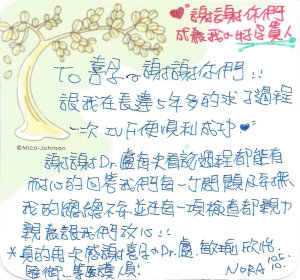 謝謝你們
成為我的特別貴人
To 喜孕の謝謝你們!!
讓我在長達5年多的求子過程
一次IVF便順利成功
©Mico-Johnson
謝謝Dr.盧每次看診過程都能有
耐心的回答我們每一個問題及
我的 並在每一項檢查都親力
親為讓我們放心!!
*真的用大感謝喜孕のDr.盧、敏瑜、欣怡、
護理人員!
NORA 105.10.